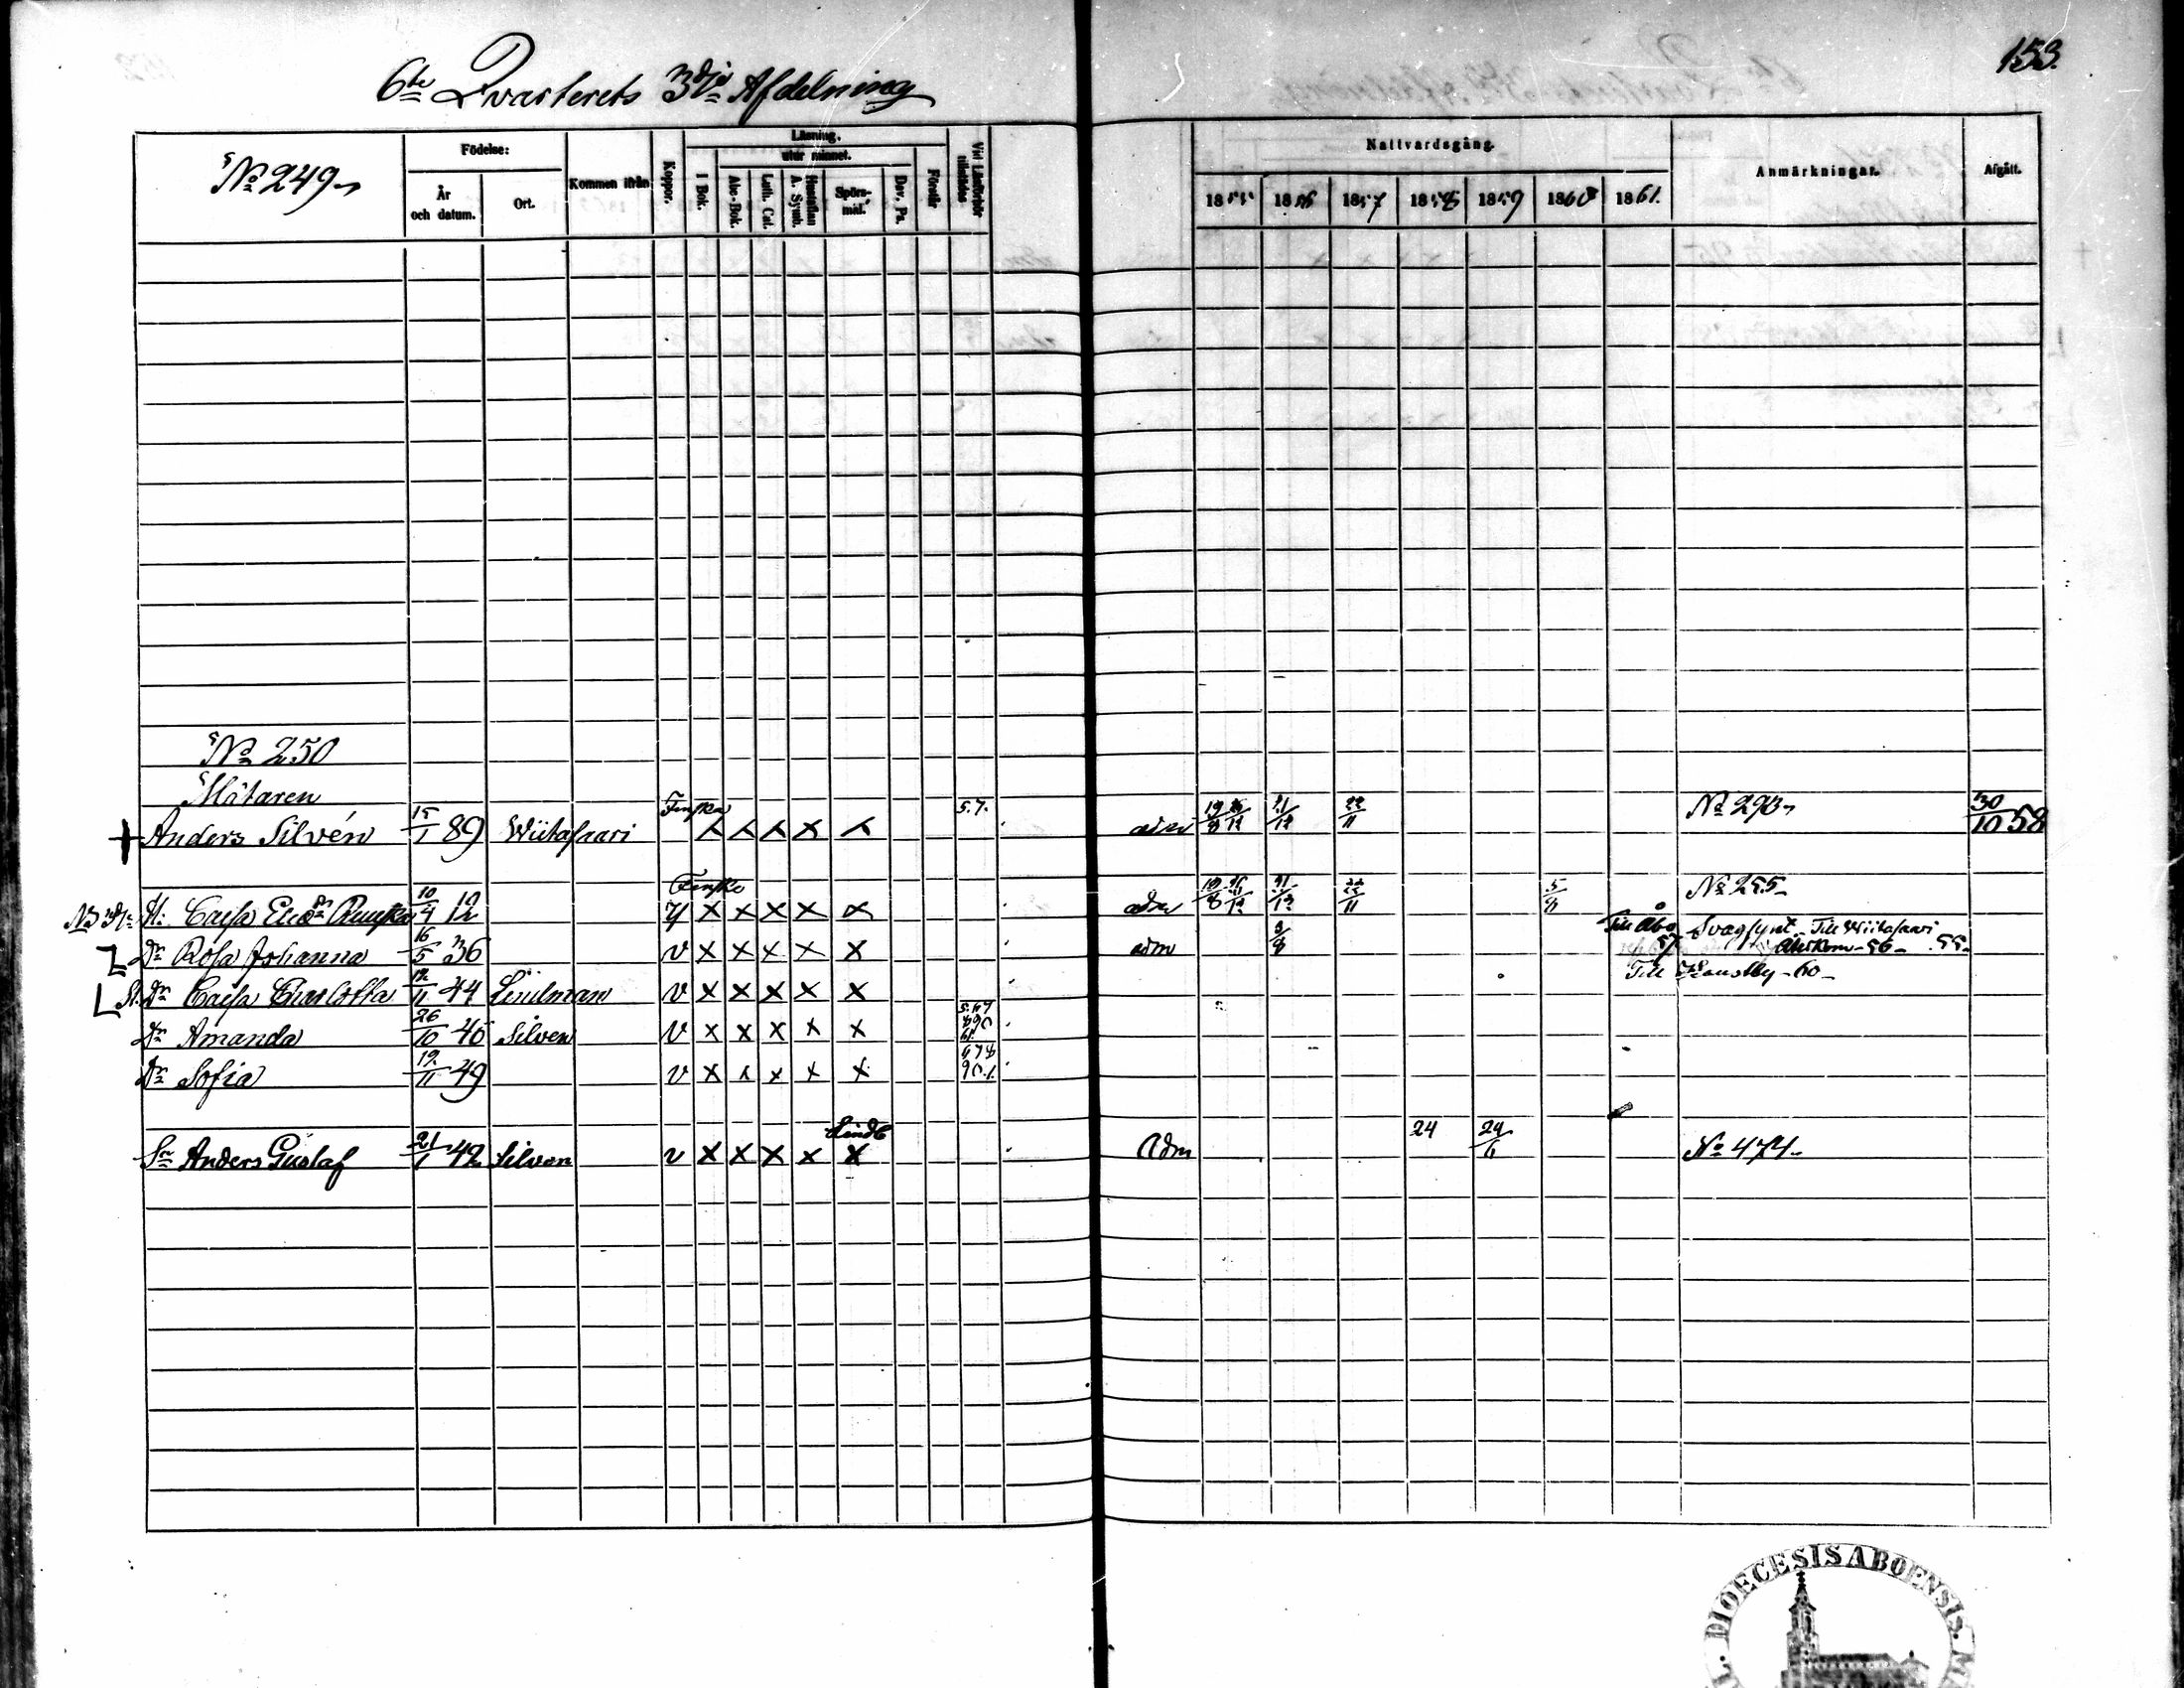 153.
6te Qvarterets 3dje Afdelning
No 249
Födelse:
År och datum.
Ort.
Kommen ifrån
Koppor.
Läsning.
utur minnet.
I Bok.
Abc-Bok.
Luth. Cat.
Hustaflan A. Symb.
Spörs-mål.
Dav. Ps.
Förstår
Vid Läsförhör tillstädes
Nattvardsgång.
1855. 1856 1857 1858 1859 1860 1861.
Anmärkningar.
Afgått.
No 250
Mätaren
Anders Silvén 15/1 89 Wiitasaari Finska x x x x x 5.7. adm 19/8 21/12 22/11 No 293 30/10 58
H: Cajsa 10/4 12 Finska x x x x x adm 21/12 22/11 5/8 No 255
Dr Rosa Johanna 16/5 36 v x x x x x adm 3/8 Till Åbo 57 Svagsynt. Till Wiitasaari 55
Åter kom 56
Dr Cajsa Charlotta 12/11 44 Lindman v x x x x x Till 60
Dr Amanda 26/10 46 Silven v x x x x x
Dr Sofia 19/11 49 v x x x x x
Sn Anders Gustaf 21/1 42 Silven v x x x x x Adm 24 24/6 No 474
DIOECESIS ABOENSIS.